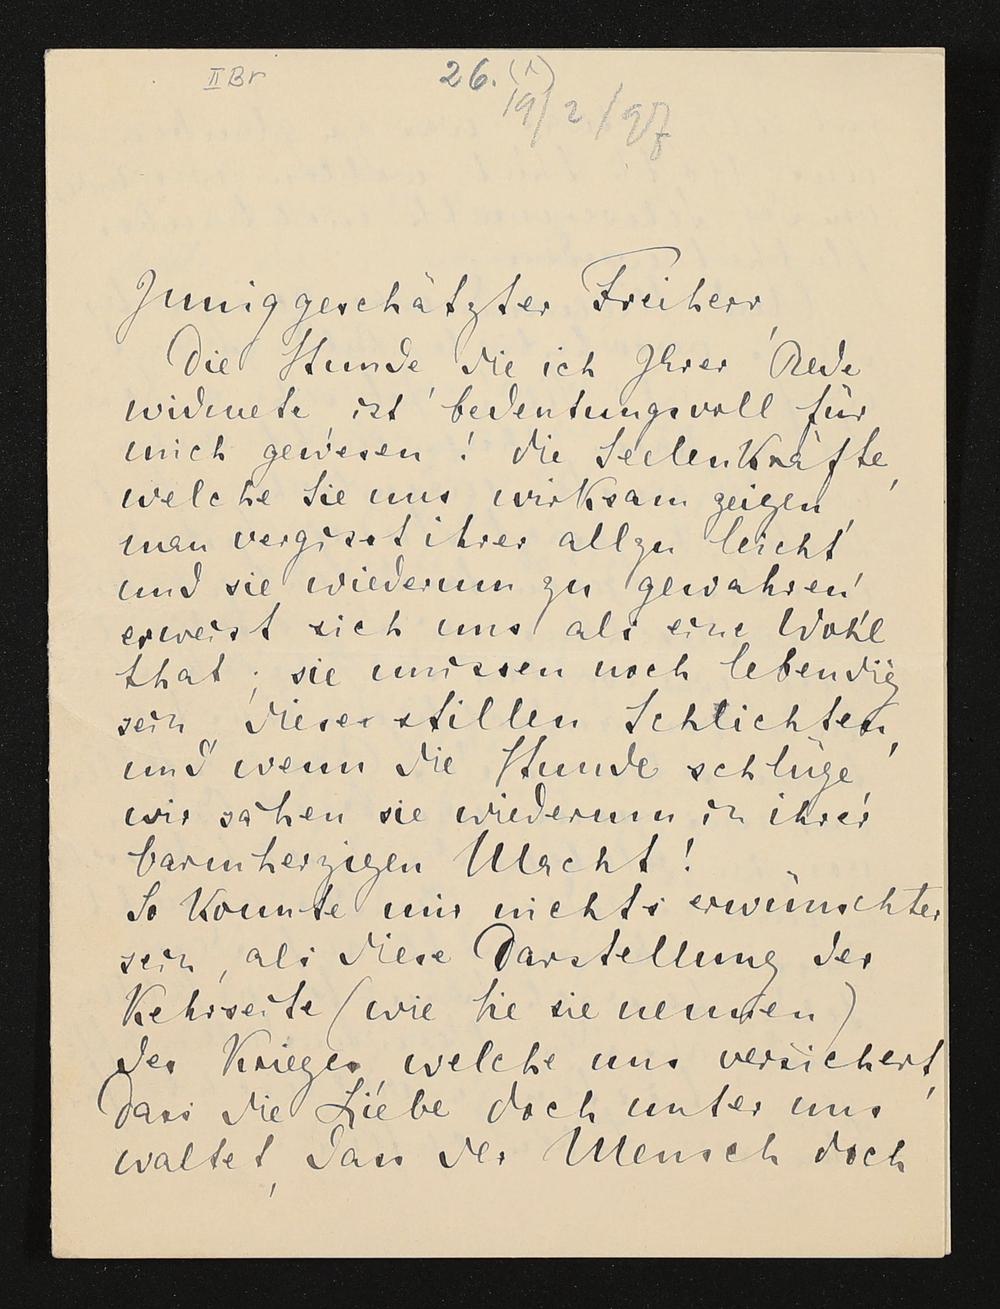 II Br
26. (1)
19/2/97
Inniggeschätzter Freiherr,
Die Stunde die ich Ihrer Rede
widmete, ist bedeutungsvoll für
mich gewesen! die Seelenkräfte,
welche Sie uns wirksam zeigen,
man vergisst ihrer allzu leicht,
und sie wiederum zu gewahren,
erweist sich uns als eine Wohl
that; sie müssen noch lebendig
sein, diese stillen Schlichten,
und wenn die Stunde schlüge,
wir sähen sie wiederum in ihrer
barmherzigen Macht!
So konnte mir nichts erwünschter
sein, als diese Darstellung der
Kehrseite (wie Sie sie nennen)
des Krieges welche uns versichert,
dass die Liebe doch unter uns
waltet, dass der Mensch doch